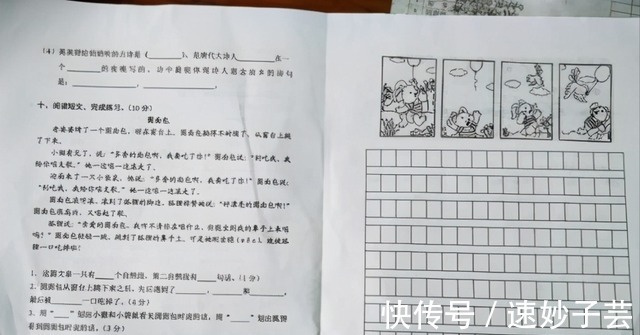 (4) 英英背给奶奶听的古诗是(________), 是唐代大诗人________在一
个________的夜晚写的。诗中最能体现诗人思念故乡的诗句
是: ____________, ____________。
十、阅读短文，完成练习。(10分)
圆面包
老婆婆烤了一个圆面包，晾在窗台上。圆面包躺得不耐烦了，从窗台上跳
了下来。
小猴看见了，说：“多香的面包啊，我要吃了你！”圆面包说：“别吃我，我
给你唱支歌。”他一边唱一边滚走了。
迎面来了一只小，他说：“多香的面包，我要吃了你！”圆面包说：
“别吃我，我给你唱支歌。”他一边唱一边滚走了。
圆面包滚呀滚，滚到了狐狸的脚边。狐狸称赞她说：“好漂亮的圆面包啊！”
圆面包很高兴，又唱起了歌。
狐狸说：“亲爱的圆面包，我听不清你在唱什么，你能坐到我的鼻子上来唱
吗？”圆面包轻轻一跳，跳到了狐狸的鼻子上。可是她刚坐稳(wěn)，就被狐
狸一口吃掉啦！
1. 这篇文章一共有____个自然段，第二自然段有____句话。(1分)
2. 圆面包从窗台上跳下来之后，先后遇到了______、______和______，
最后被______一口吃掉了。(4分)
3. 用“——”划出小和小看见圆面包时说的话，用“”划出狐狸
看到圆面包时说的话。(3分)
快传号 / 速妙子芸